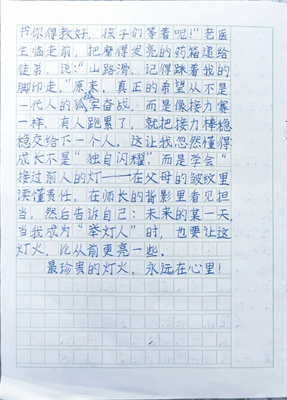 书你得教好，孩子们等着呢！"老医
生临走前，把磨得发亮的药箱递给
徒弟，说："山路滑，记得踩着我的
脚印走。"原来，真正的希望从不是
一代人的孤军奋战，而是像接力赛
一样，有人跑累了，就把接力棒稳
稳交给下一个人。这让我忽然懂得
成长不是"独自闪耀"而是学会"
接过前人的灯——在父母的皱纹里
读懂责任，在师长的背影里看见担
当，然后告诉自己：未来的某一天，
当我成为"举灯人"时，也要让这
灯火，比从前更亮一些。
最珍贵的灯火，永远在心里！